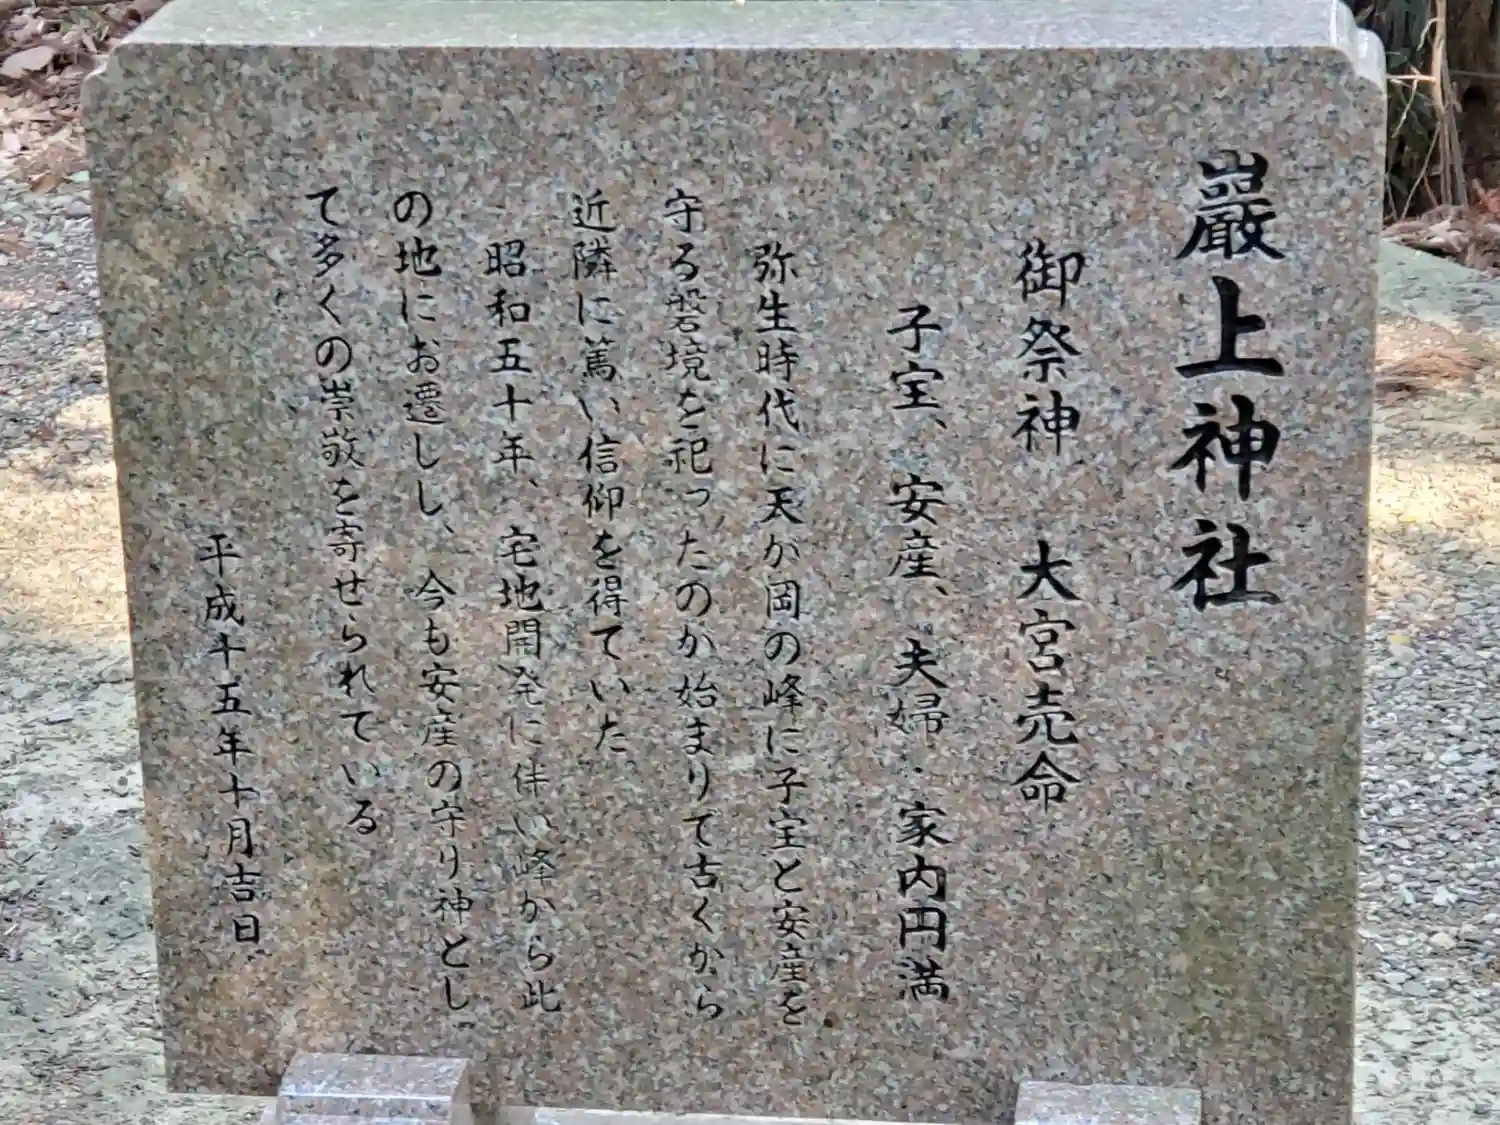 巖上神社
御祭神　大宮売命
子宝、安産、夫婦・家内円満
弥生時代に天か岡の峰に子宝と安産を
守る磐境を祀ったのか始まりて古くから
近隣に篤い信仰を得ていた
昭和五十年、宅地開発に伴い峰から此
の地にお遷しし、今も安産の守り神とし
て多くの崇敬を寄せられている
平成十五年十月吉日